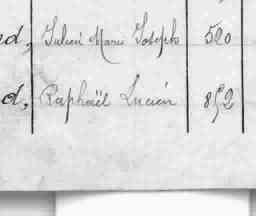 d, Julien Marie Joseph 520
d, Raphaël Lucien 852